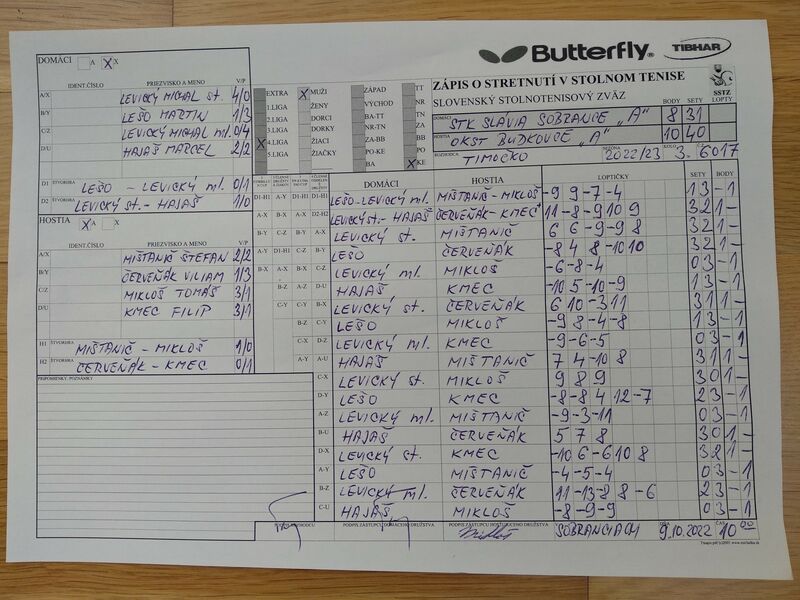 Butterfly
TIBHAR
DOMÁCI A X X
IDENT.ČÍSLO PRIEZVISKO A MENO V/P
A/X LEVICKÝ MICHAL st. 4/0
B/Y LEŠO MARTIN 1/3
C/Z LEVICKÝ MICHAL ml. 0/4
D/U HAJAŠ MARCEL 2/2
D1 ŠTVORHRA LEŠO - LEVICKÝ ml. 0/1
D2 ŠTVORHRA LEVICKÝ st. - HAJAŠ 1/0
HOSTIA X A X
IDENT.ČÍSLO PRIEZVISKO A MENO V/P
A/X MIŠTANIČ ŠTEFAN 2/2
B/Y ČERVEŇÁK VILIAM 1/3
C/Z MIKLOŠ TOMÁŠ 3/1
D/U KMEC FILIP 3/1
H1 ŠTVORHRA MIŠTANIČ - MIKLOŠ 1/0
H2 ŠTVORHRA ČERVEŇÁK - KMEC 0/1
PRIPOMIENKY, POZNÁMKY
EXTRA X MUŽI ZÁPAD TT
1.LIGA ŽENY VÝCHOD NR
2.LIGA DORCI BA-TT TN
3.LIGA DORKY NR-TN ZA
X 4.LIGA ŽIACI ZA-BB BB
5.LIGA ŽIAČKY PO-KE PO
BA X KE
ZÁPIS O STRETNUTÍ V STOLNOM TENISE
SLOVENSKÝ STOLNOTENISOVÝ ZVÄZ
SSTZ
BODY SETY LOPTY
DOMÁCI STK SLÁVIA SOBRANCE „A" 8 31
HOSTIA OKST BUDKOVCE „A" 10 40
ROZHODCA TIMOČKO SEZÓNA 2022/23 KOLO 3. 6017
DOMÁCI HOSTIA LOPTIČKY SETY BODY
D1-H1 LEŠO-LEVICKÝ ml. MIŠTANIČ-MIKLOŠ -9 9 -7 -4 1 3 - 1
D2-H2 LEVICKÝ st.- HAJAŠ ČERVEŇÁK-KMEC 11 -8 -9 10 9 3 2 1 -
A-Y LEVICKÝ st. MIŠTANIČ 6 6 -9 -9 8 3 2 1 -
LEŠO ČERVEŇÁK -8 4 8 -10 10 3 2 1 -
C-Z LEVICKÝ ml. MIKLOŠ -6 -8 -4 0 3 - 1
D-U HAJAŠ KMEC -10 5 -10 -9 1 3 - 1
LEVICKÝ st. ČERVEŇÁK 6 10 -3 11 3 1 1 -
C-Y LEŠO MIKLOŠ -9 8 -4 -8 1 3 - 1
LEVICKÝ ml. KMEC -9 -6 -5 0 3 - 1
A-U HAJAŠ MIŠTANIČ 7 4 -10 8 3 1 1 -
C-X LEVICKÝ st. MIKLOŠ 9 8 9 3 0 1 -
D-Y LEŠO KMEC -8 -8 4 12 -7 2 3 - 1
A-Z LEVICKÝ ml. MIŠTANIČ -9 -3 -11 0 3 - 1
B-U HAJAŠ ČERVEŇÁK 5 7 8 3 0 1 -
D-X LEVICKÝ st. KMEC -10 6 -6 10 8 3 2 1 -
A-Y LEŠO MIŠTANIČ -4 -5 -4 0 3 - 1
B-Z LEVICKÝ ml. ČERVEŇÁK 11 -13 -8 8 -6 2 3 - 1
C-U HAJAŠ MIKLOŠ -8 -9 -9 0 3 - 1
PODPIS ZÁSTUPCU DOMÁCEHO DRUŽSTVA PODPIS ZÁSTUPCU HOSŤUJÚCEHO DRUŽSTVA
SOBRANCIACH 9.10.2022 10 00